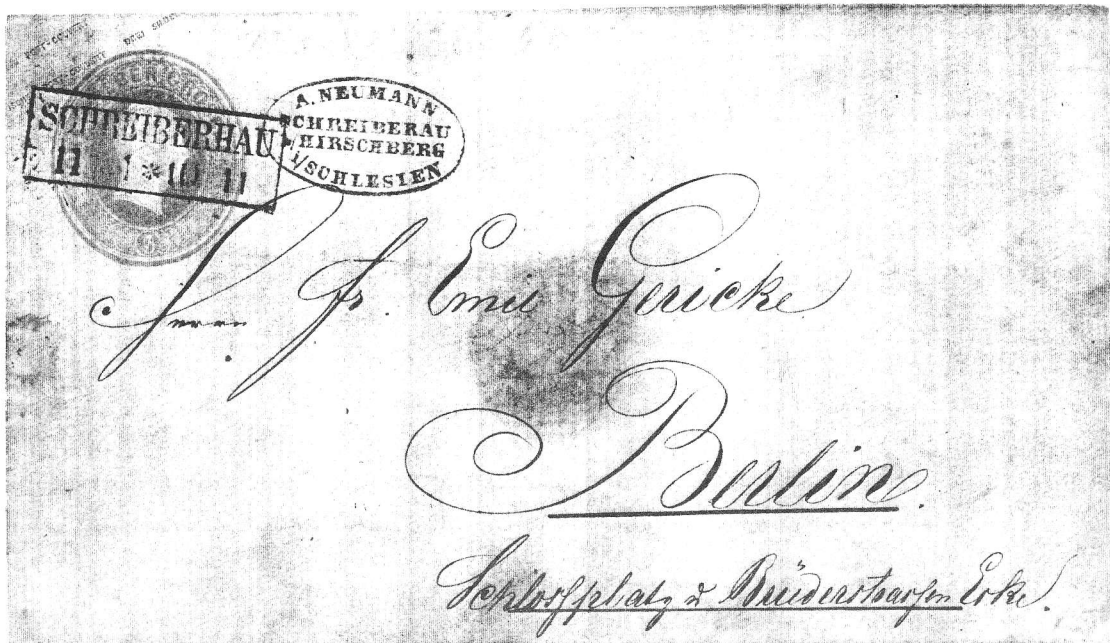 POST-COUVERT DREI SILBE
SCHREIBERHAU
11 1 * 10 11
A. NEUMANN
SCHREIBERAU
HIRSCHBERG
i/SCHLESIEN
Herrn Fr. Emil Gericke
Berlin.
Schloßplatz u Brüderstraßen Ecke.